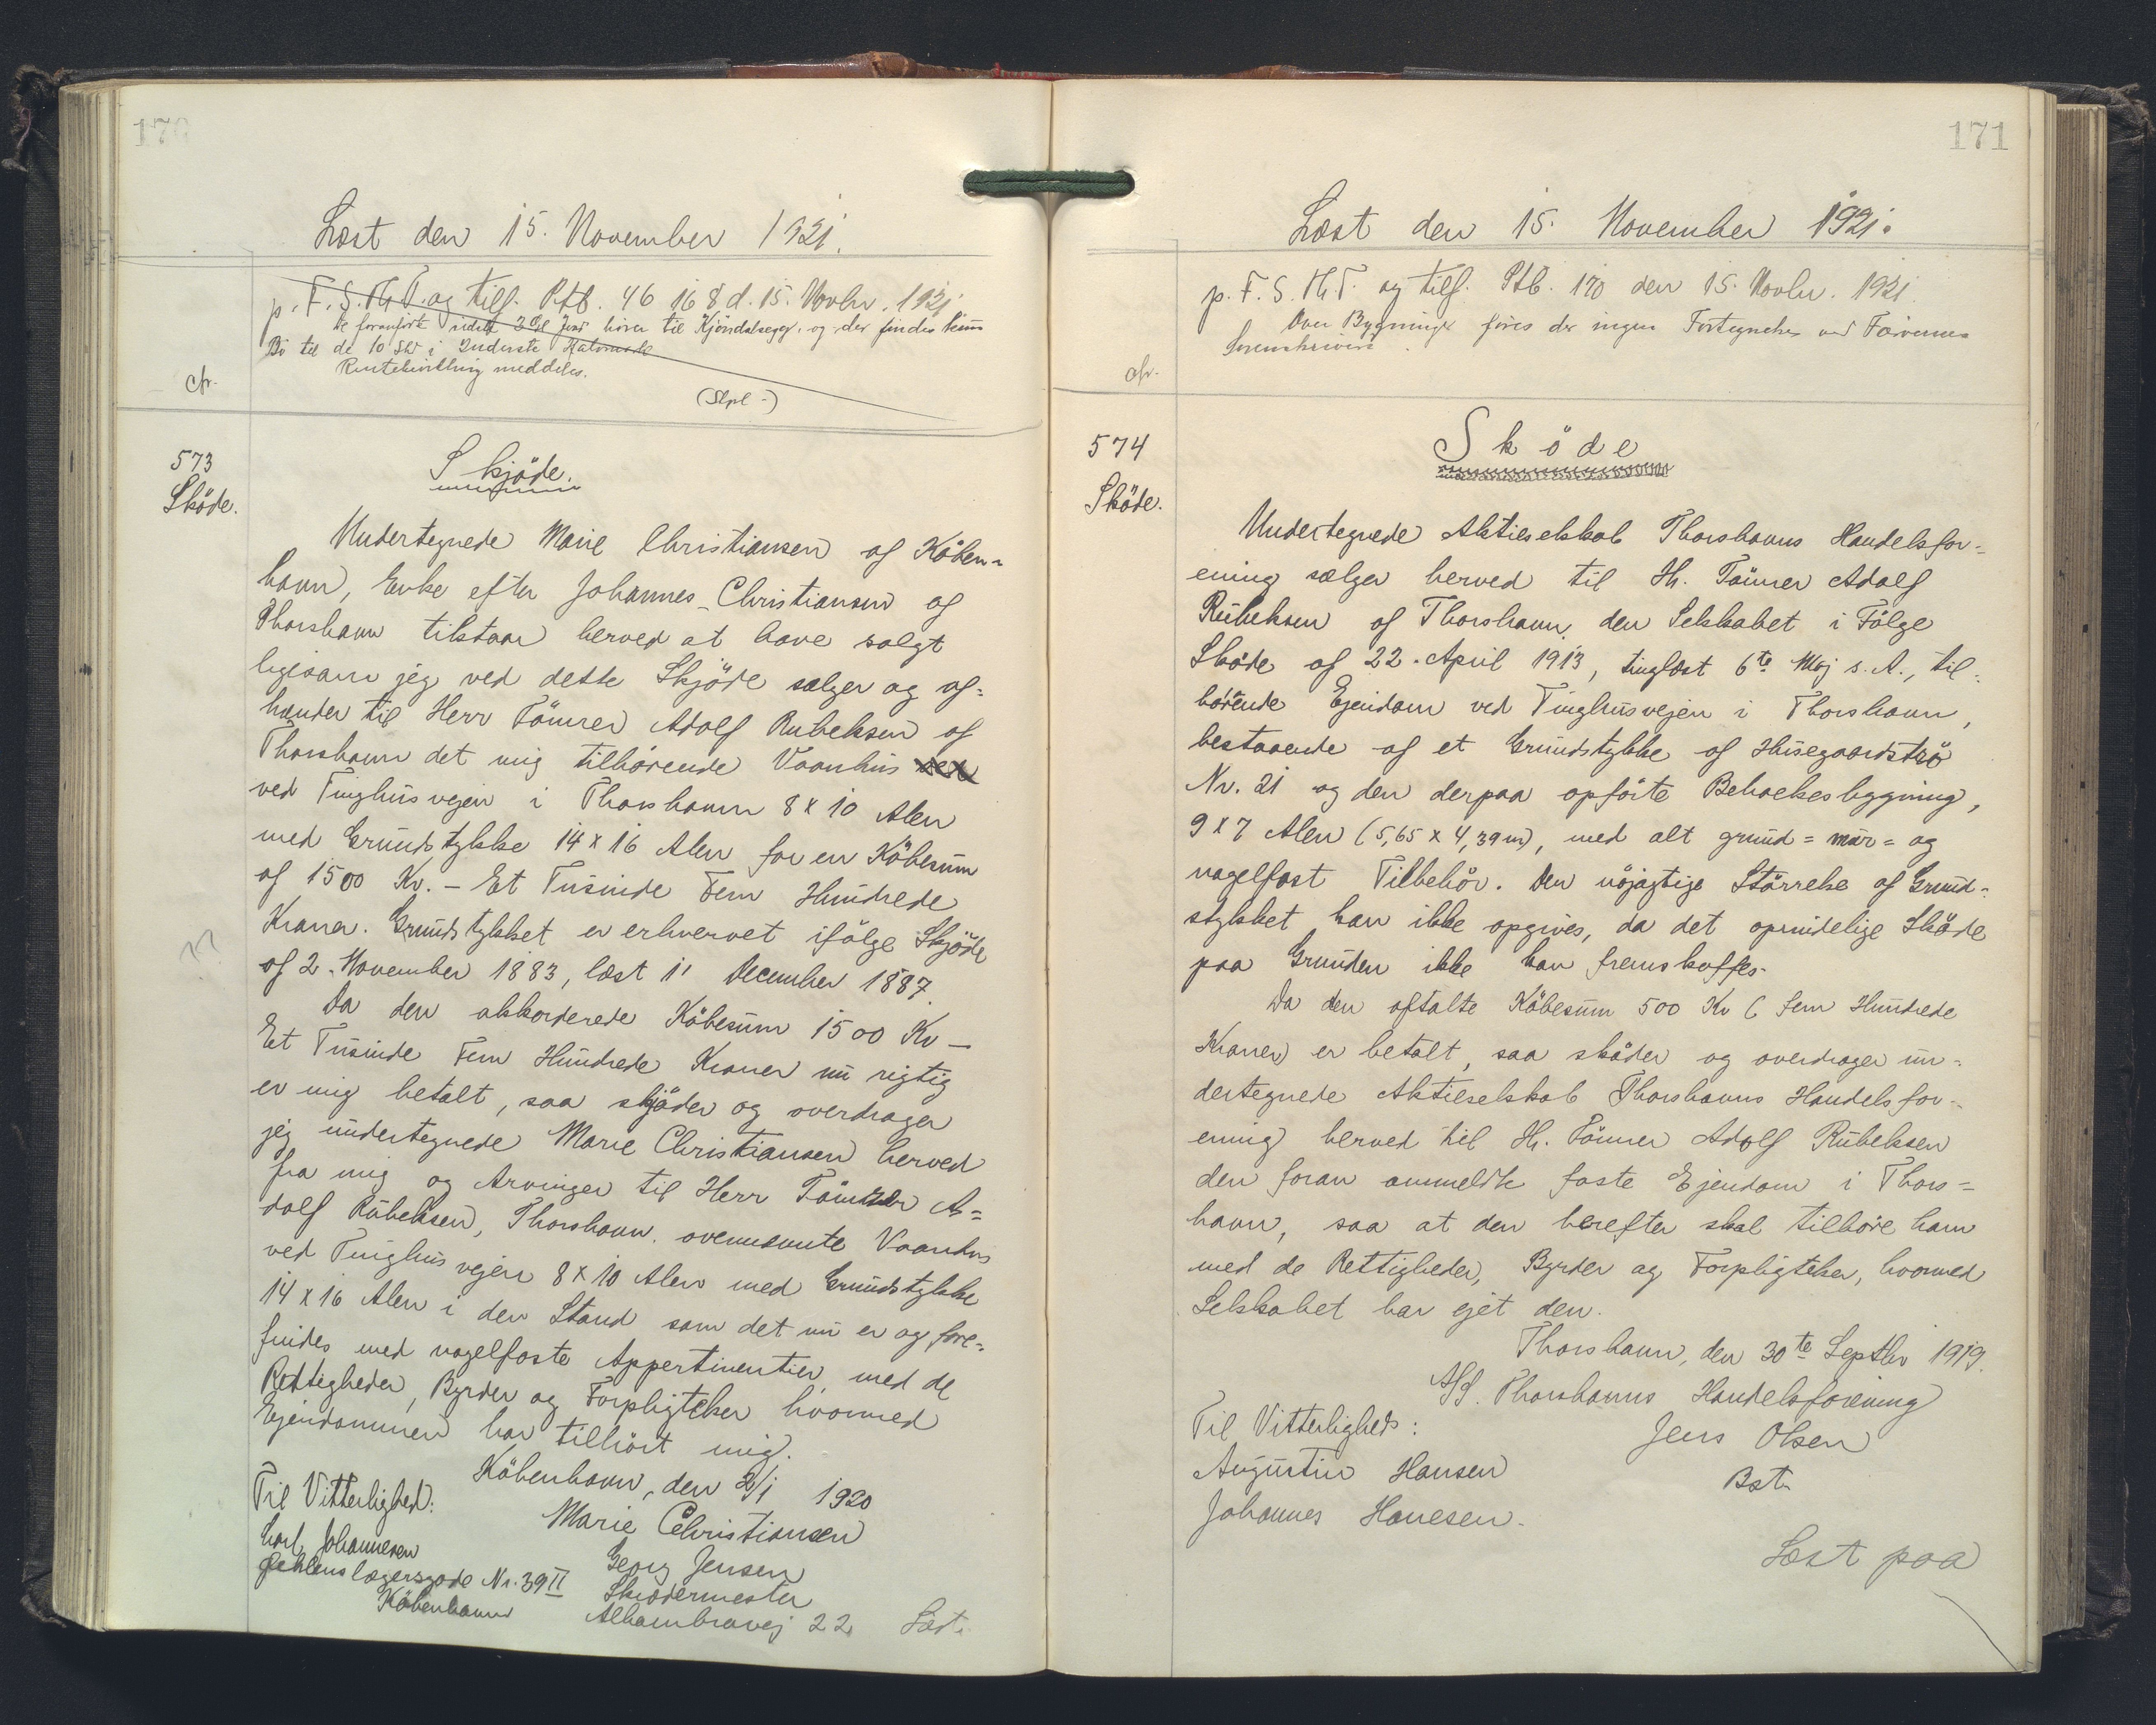 170
Læst den 15. November 1921.
p. F. S. Th. T. og tilf. Ptb. 46 168 d. 15. Novbr. 1921
De foranførte hører til og der findes
Bö til de 10 Skd i Inderste
meddeles.
cfr.
(Slpl -)
573
Sköde.
Skjöde.
Undertegnede Marie Christiansen af Köben-
havn, Enke efter Johannes Christiansen af
Thorshavn tilstaar herved at have solgt
ligesom jeg ved dette Skjöde sælger og af-
hænder til Herr Tömrer Adolf Rubeksen af
Thorshavn det mig tilhörende Vaanhus
ved Tinghusvejen i Thorshavn 8 x 10 Alen
med Grundstykke 14 x 16 Alen for en Köbesum
af 1500 Kr. - Et Tusinde Fem Hundrede
Kroner. Grundstykket er erhvervet ifölge Skjöde
af 2. November 1883, læst 11 December 1887.
Da den akkorderede Köbesum 1500 Kr -
Et Tusinde Fem Hundrede Kroner nu rigtig
er mig betalt, saa skjöder og overdrager
jeg undertegnede Marie Christiansen herved
fra mig og Arvinger til Herr Tömrer A-
dolf Rubeksen, Thorshavn, ovennævnte Vaanhus
ved Tinghusvejen 8 x 10 Alen med Grundstykke
14 x 16 Alen i den Stand som det nu er og fore-
findes med nagelfaste Appertinentier, med de
Rettigheder, Byrder og Forpligtelser hvormed
Ejendommen har tilhört mig.
Köbenhavn, den 2/1 1920
Til Vitterlighed:
Marie Christiansen
Carl Johannesen
Georg Jensen
Nr. 39 II
Skrædermester
Köbenhavn
Alhambravej 22
Læst.
171
Læst den 15. November 1921.
p. F. S. Th. T. og tilf. Ptb. 170 den 15. Novbr. 1921.
Over Bygninger föres der ingen Fortegnelse ved Færöernes
Sorenskriveri.
cfr.
574
Sköde.
Sköde
Undertegnede Aktieselskab Thorshavns Handelsfor-
ening sælger herved til Hr. Tömrer Adolf
Rubeksen af Thorshavn, den Selskabet i Fölge
Sköde af 22. April 1913, tinglæst 6te Maj s. A., til-
hörende Ejendom ved Tinghusvejen i Thorshavn,
bestaaende af et Grundstykke af Husegaardströ
Nr. 21 og den derpaa opförte Beboelsesbygning,
9 x 7 Alen (5,65 x 4,39 m), med alt grund- mur- og
nagelfast Tilbehör. Den nöjagtige Störrelse af Grund-
stykket kan ikke opgives, da det oprindelige Sköde
paa Grunden ikke kan fremskaffes.
Da den aftalte Köbesum 500 Kr (Fem Hundrede
Kroner) er betalt, saa sköder og overdrager un-
dertegnede Aktieselskab Thorshavns Handelsfor-
ening herved til Hr. Tömrer Adolf Rubeksen
den foran ommeldte faste Ejendom i Thors-
havn, saa at den herefter skal tilhöre ham
med de Rettigheder, Byrder og Forpligtelser, hvormed
Selskabet har ejet den.
Thorshavn, den 30te Septbr 1919.
A/S. Thorshavns Handelsforening
Til Vitterlighed:
Jens Olsen
Augustin Hansen
Bst.
Johannes Hanesen.
Læst paa